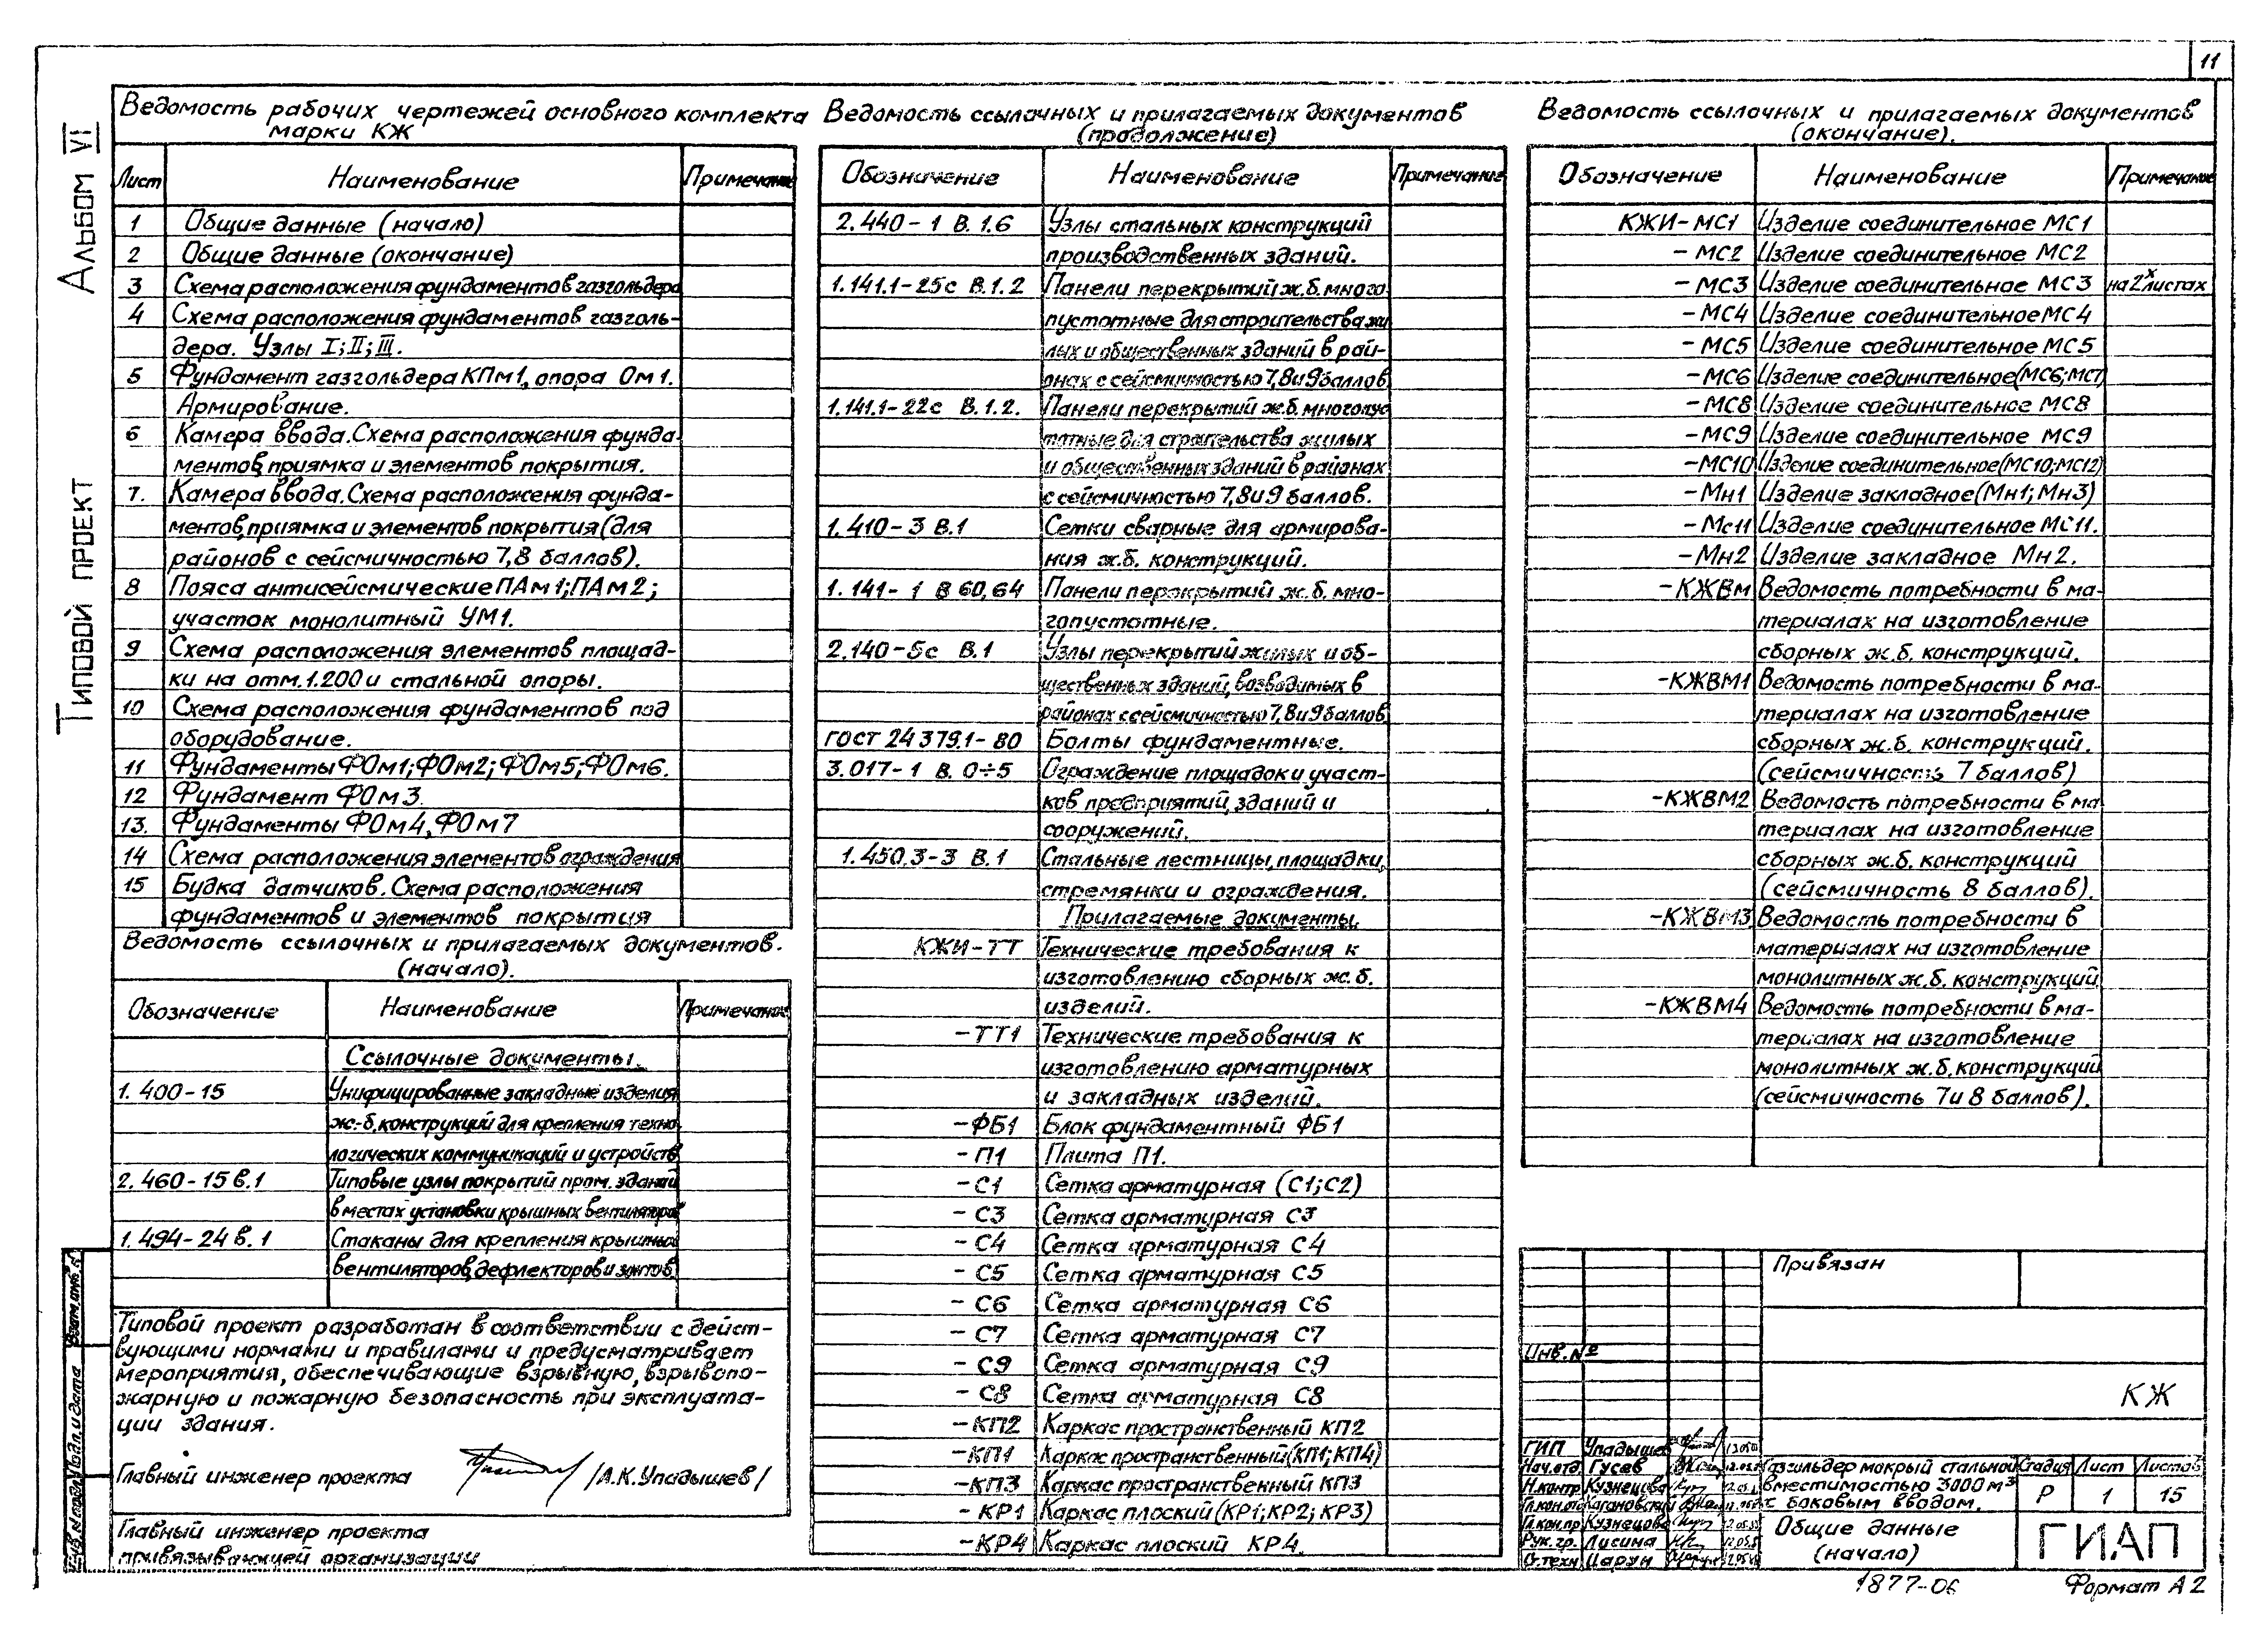 11
Альбом VI
Типовой проект
Ведомость рабочих чертежей основного комплекта
марки КЖ
Лист Наименование Примечание
1 Общие данные (начало)
2 Общие данные (окончание)
3 Схема расположения фундаментов газгольдера
4 Схема расположения фундаментов газголь-
дера. Узлы I; II; III.
5 Фундамент газгольдера КПм1, опора Ом1.
Армирование.
6 Камера ввода. Схема расположения фунда-
ментов, приямка и элементов покрытия.
7. Камера ввода. Схема расположения фунда-
ментов, приямка и элементов покрытия (для
районов с сейсмичностью 7,8 баллов).
8 Пояса антисейсмические ПАм1; ПАм2;
участок монолитный УМ1.
9 Схема расположения элементов площад-
ки на отм. 1.200 и стальной опоры.
10 Схема расположения фундаментов под
оборудование.
11 Фундаменты ФОм1; ФОм2; ФОм5; ФОм6.
12 Фундамент ФОм3.
13. Фундаменты ФОм4, ФОм7
14 Схема расположения элементов ограждения
15 Будка датчиков. Схема расположения
фундаментов и элементов покрытия
Ведомость ссылочных и прилагаемых документов.
(начало).
Обозначение Наименование Примечание
Ссылочные документы.
1.400-15 Унифицированные закладные изделия
ж.-б. конструкций для крепления техно
логических коммуникаций и устройств
2.460-15 в.1 Типовые узлы покрытий пром. зданий
в местах установки крышных вентиляторов
1.494-24 в.1 Стаканы для крепления крышных
вентиляторов, дефлекторов и зонтов.
Типовой проект разработан в соответствии с дейст-
вующими нормами и правилами и предусматривает
мероприятия, обеспечивающие взрывную, взрывопо-
жарную и пожарную безопасность при эксплуата-
ции здания.
Главный инженер проекта /А.К.Упадышев/
Главный инженер проекта
привязывающей организации
Ведомость ссылочных и прилагаемых документов
(продолжение)
Обозначение Наименование Примечание
2.440-1 В.1.6 Узлы стальных конструкций
производственных зданий.
1.141.1-25с В.1.2 Панели перекрытий ж.б. много
пустотные для строительства жи
лых и общественных зданий в рай-
онах с сейсмичностью 7,8 и 9 баллов
1.141.1-22с В.1.2. Панели перекрытий ж.б. многопус
тотные для строительства жилых
и общественных зданий в районах
с сейсмичностью 7,8 и 9 баллов.
1.410-3 В.1 Сетки сварные для армирова-
ния ж.б. конструкций.
1.141-1 В 60,64 Панели перекрытий ж.б. мно-
гопустотные.
2.140-5с В.1 Узлы перекрытий жилых и об-
щественных зданий, возводимых в
районах с сейсмичностью 7,8 и 9 баллов
ГОСТ 24379.1-80 Болты фундаментные.
3.017-1 В. 0÷5 Ограждение площадок и участ-
ков предприятий, зданий и
сооружений.
1.450.3-3 В.1 Стальные лестницы, площадки,
стремянки и ограждения.
Прилагаемые документы.
КЖИ-ТТ Технические требования к
изготовлению сборных ж.б.
изделий.
-ТТ1 Технические требования к
изготовлению арматурных
и закладных изделий.
-ФБ1 Блок фундаментный ФБ1
-П1 Плита П1.
-С1 Сетка арматурная (С1; С2)
-С3 Сетка арматурная С3
-С4 Сетка арматурная С4
-С5 Сетка арматурная С5
-С6 Сетка арматурная С6
-С7 Сетка арматурная С7
-С9 Сетка арматурная С9
-С8 Сетка арматурная С8
-КП2 Каркас пространственный КП2
-КП1 Каркас пространственный (КП1; КП4)
-КП3 Каркас пространственный КП3
-КР1 Каркас плоский (КР1; КР2; КР3)
-КР4 Каркас плоский КР4.
Ведомость ссылочных и прилагаемых документов
(окончание).
Обозначение Наименование Примечание
КЖИ-МС1 Изделие соединительное МС1
-МС2 Изделие соединительное МС2
-МС3 Изделие соединительное МС3 на 2х листах
-МС4 Изделие соединительное МС4
-МС5 Изделие соединительное МС5
-МС6 Изделие соединительное (МС6; МС7)
-МС8 Изделие соединительное МС8
-МС9 Изделие соединительное МС9
-МС10 Изделие соединительное (МС10; МС12)
-Мн1 Изделие закладное (Мн1; Мн3)
-Мс11 Изделие соединительное МС11.
-Мн2 Изделие закладное Мн2.
-КЖВм Ведомость потребности в ма-
териалах на изготовление
сборных ж.б. конструкций.
-КЖВМ1 Ведомость потребности в ма-
териалах на изготовление
сборных ж.б. конструкций.
(сейсмичность 7 баллов)
-КЖВМ2 Ведомость потребности в ма
териалах на изготовление
сборных ж.б. конструкций
(сейсмичность 8 баллов).
-КЖВМ3 Ведомость потребности в
материалах на изготовление
монолитных ж.б. конструкций
-КЖВМ4 Ведомость потребности в ма-
териалах на изготовление
монолитных ж.б. конструкций
(сейсмичность 7 и 8 баллов).
Привязан
Инв. №
КЖ
ГИП Упадышев
Нач.отд. Гусев
Н.контр Кузнецова
Гл.кон.отд Кагановский
Гл.кон.пр Кузнецова
Рук. гр. Лисина
Ст.техн Царун
Газгольдер мокрый стальной
вместимостью 3000 м³
с боковым вводом.
Стадия Лист Листов
Р 1 15
Общие данные
(начало)
ГИАП
1877-06
Формат А2
Взам.инв.№
Подп. и дата
Инв.№подл.